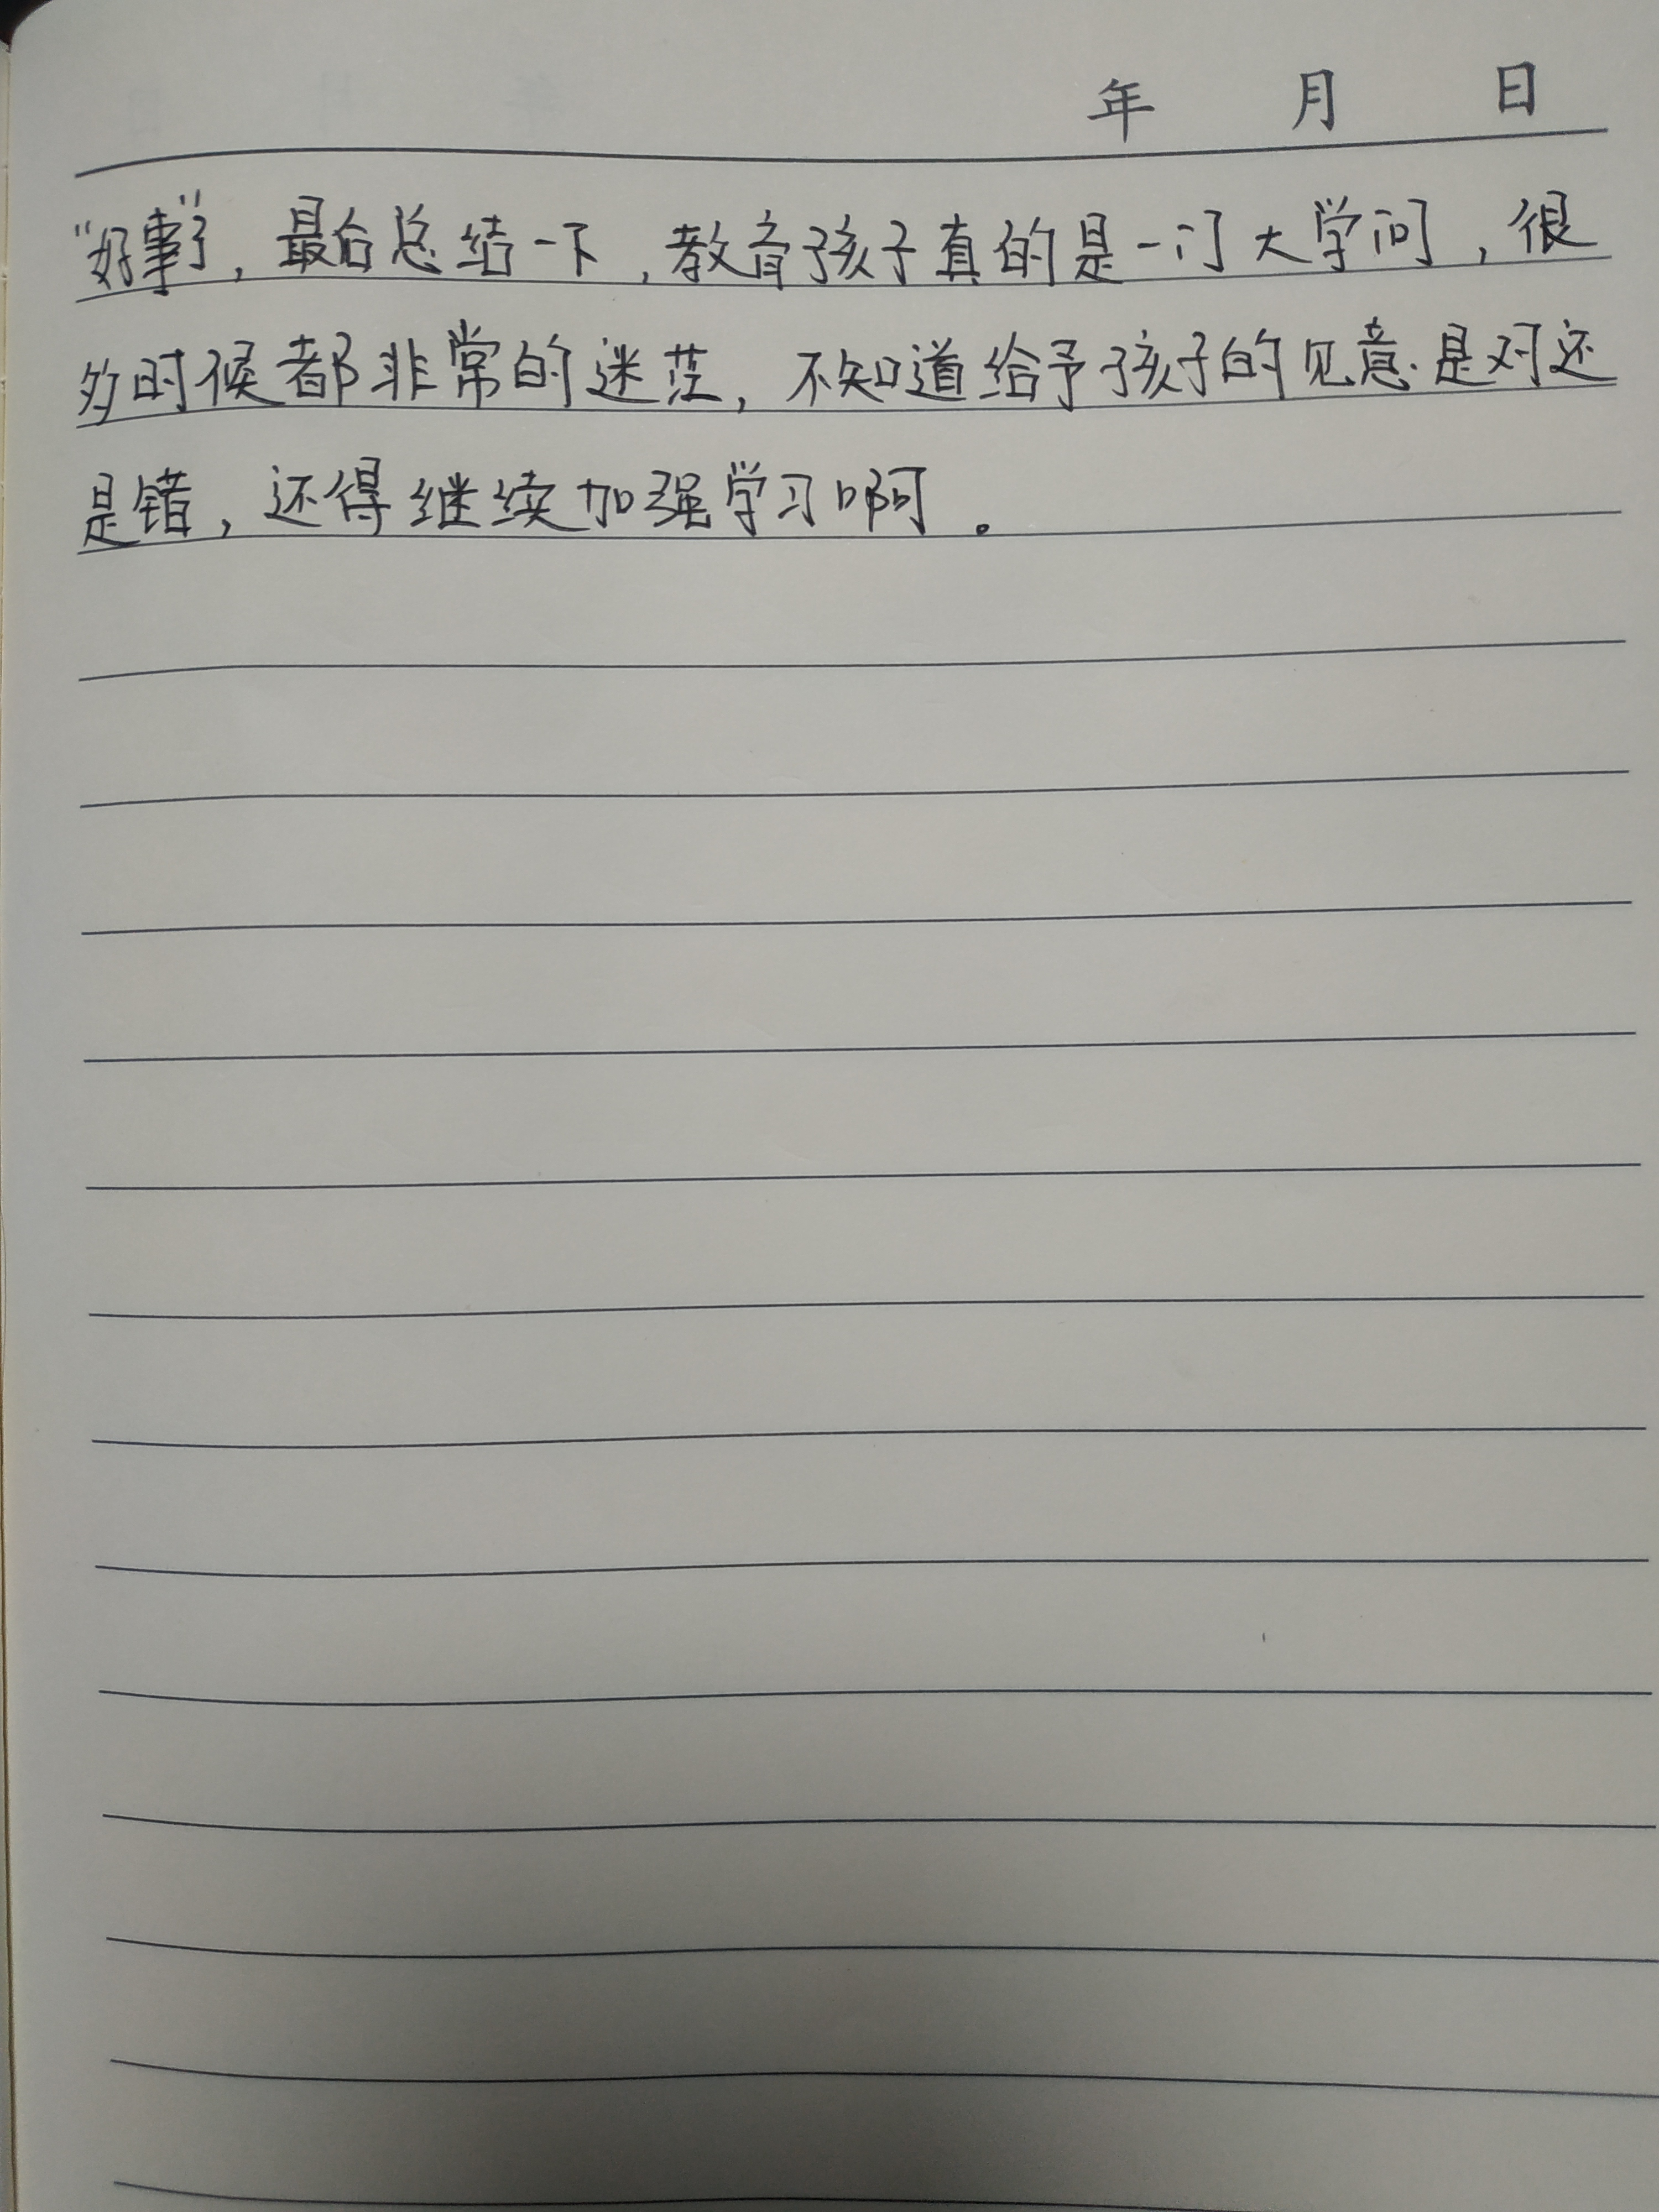 年 月 日
“好事”了，最后总结一下，教育孩子真的是一门大学问，很
多时候都非常的迷茫，不知道给予孩子的见意是对还
是错，还得继续加强学习啊。